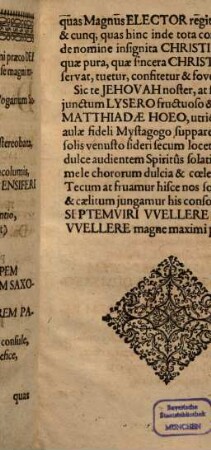 ni præco DEI
se magnit-
Vogarium So
stereobata,
columis,
ENSIFERI
ntio,
t.)
PEM
M SAXO-
REM PA-
consule,
efice,
quas
quas Magnus ELECTOR regit
& cunq; quas hinc inde tota con
de nomine insignita CHRISTI
quæ pura, quæ sincera CHRIST
servat, tuetur, confitetur & fove
Sic te JEHOVAH noster, at s
junctum LYSERO fructuoso &
MATTHIADÆ HOEO, utriq
aulæ fideli Mystagogo suppare
solis venusto sideri secum locet
dulce audientem Spiritûs solati
mele chororum dulcia & cœle
Tecum at fruamur hisce nos so
& cælitum jungamur his conso
SEPTEMVIRI VVELLERE
VVELLERE magne maximi p
Bayerische
Staatsbibliothek
MÜNCHEN